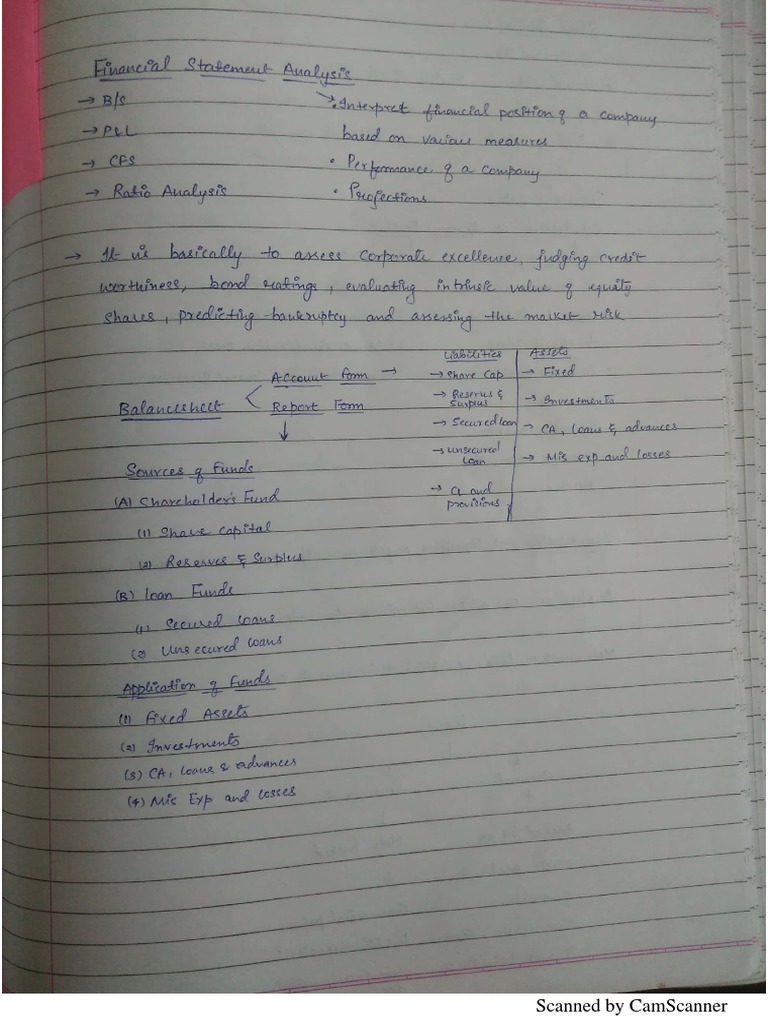 Financial Statement Analysis
→ B/S
→ P&L
→ CFS
→ Ratio Analysis
→ • Interpret financial position of a company
based on various measures
• Performance of a company
• Projections
→ It is basically to assess corporate excellence, judging credit
worthiness, bond ratings, evaluating intrinsic value of equity
shares, predicting bankruptcy and assessing the market risk
Balancesheet
Account form →
Report Form
↓
Liabilities
→ Share Cap
→ Reserves &
Surplus
→ Secured loan
→ unsecured
loan
→ CL and
provisions
Assets
→ Fixed
→ Investments
→ CA, loans & advances
→ Mis exp and losses
Sources of Funds
(A) Shareholder's Fund
(1) Share capital
(2) Reserves & Surplus
(B) Loan Funds
(1) Secured loans
(2) Unsecured loans
Application of Funds
(1) Fixed Assets
(2) Investments
(3) CA, loans & advances
(4) Mis Exp and losses
Scanned by CamScanner